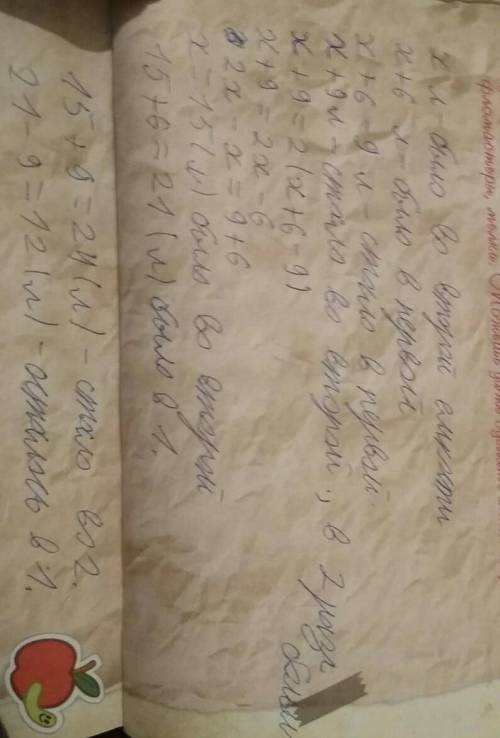 х л - было во второй ёмкости
х+6 л - было в первой
х+6-9 л - стало в первой.
х+9 л - стало во второй, в 2 раза больше
х+9=2(х+6-9)
х+9=2х-6
2х-х=9+6
х=15(л) было во второй
15+6=21(л) было в 1.
15+9=24(л) - стало во 2.
21-9=12(л) - осталось в 1.